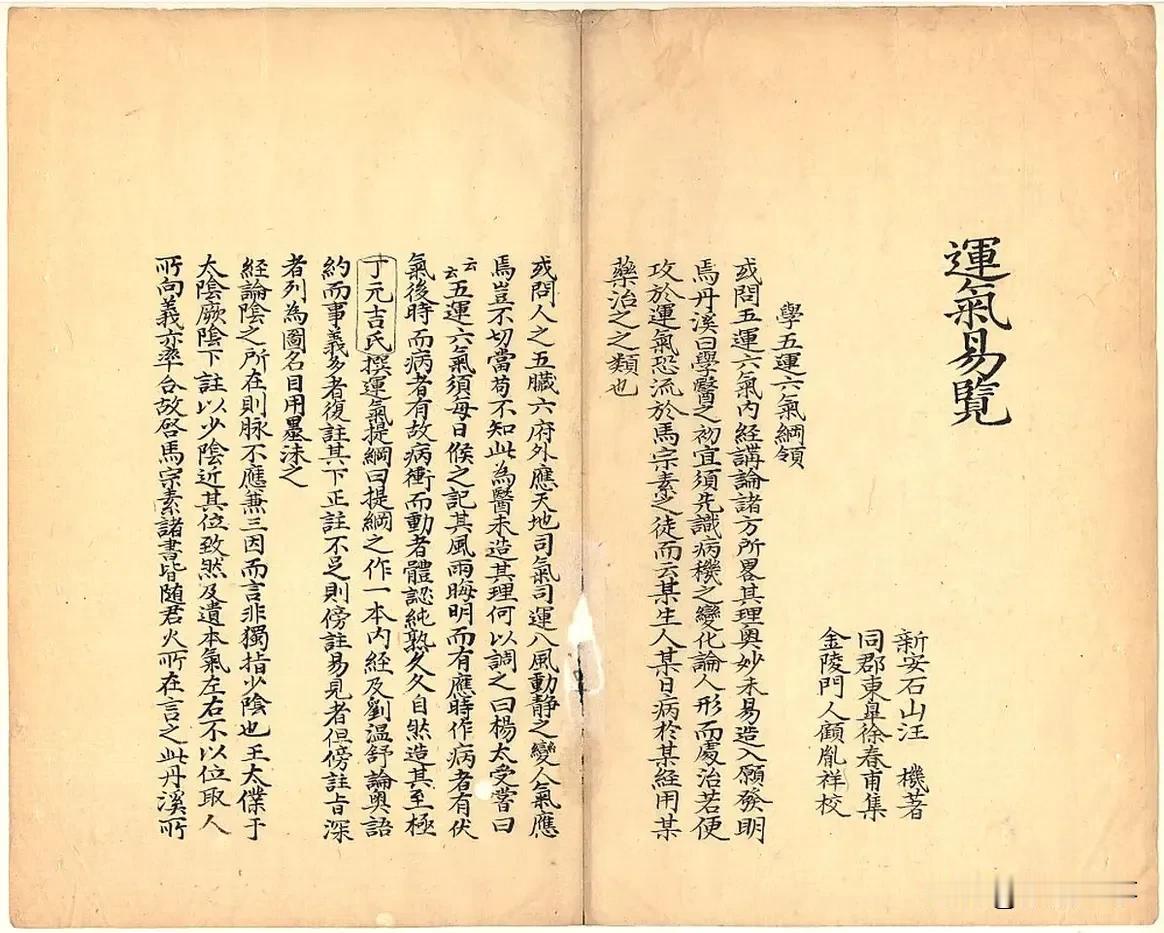 運氣易覽
新安石山汪　機著
同郡東臯徐春甫集
金陵門人顧胤祥校
學五運六氣綱領
或問五運六氣内經講論諸方所畧其理奥妙未易造入願發明
焉丹溪曰學醫之初宜須先識病機之變化論人形而處治若便
攻於運氣恐流於馬宗素之徒而云某生人某日病於某經用某
藥治之之類也
或問人之五臟六府外應天地司氣司運八風動静之變人氣應
焉豈不切當苟不知此為醫未造其理何以調之曰楊太受嘗曰
云云五運六氣須每日候之記其風雨晦明而有應時作病者有伏
氣後時而病者有故病衝而動者體認純熟久久自然造其至極
丁元吉氏撰運氣提綱曰提綱之作一本内經及劉温舒論奥語
約而事義多者復註其下正註不足則傍註易見者但傍註旨深
者列為圖名目用墨沬之
經論陰之所在則脉不應兼三因而言非獨指少陰也王太僕于
太陰厥陰下註以少陰近其位致然及遺本氣左右不以位取人
所向義亦率合故啓馬宗素諸書皆随君火所在言之此丹溪所